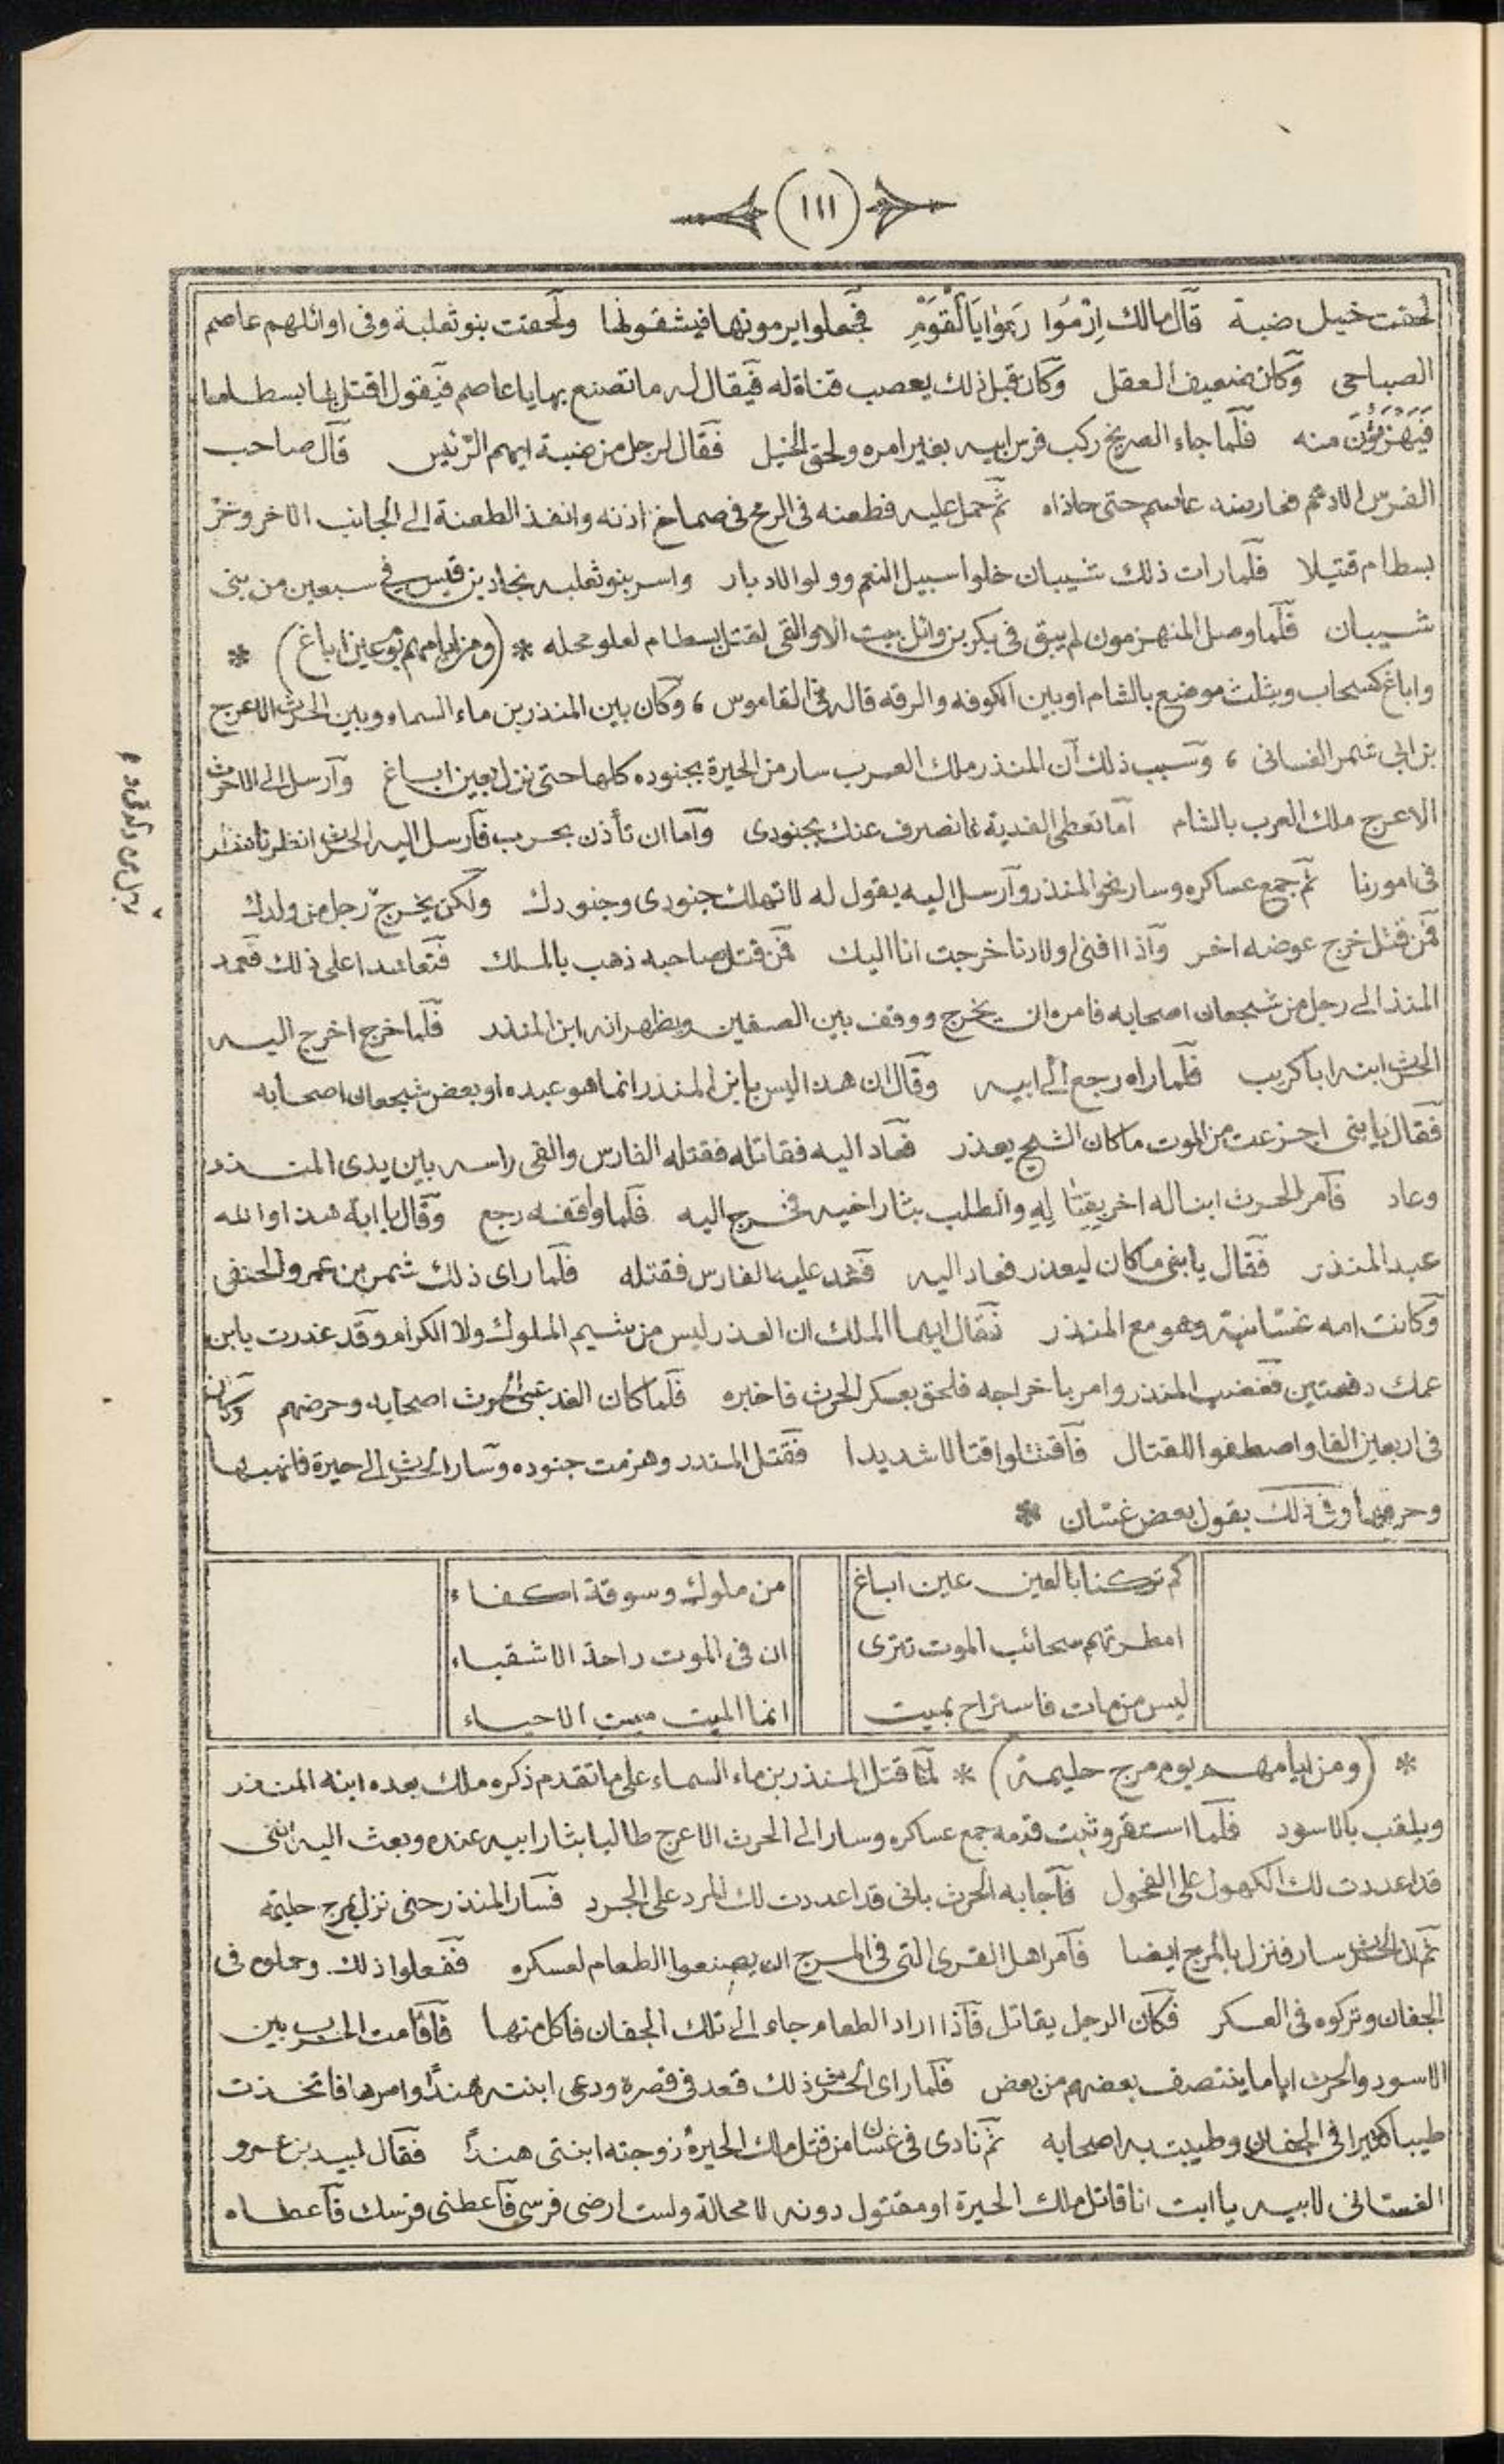 (١١١)
لحقت خيل ضبة قال مالك اِرْمُوا رَمِوا يَاَلْقَوْمِ فجعلوا يرمونها فيشقونها ولحقت بنو ثعلبة وفى اوائلهم عاصم
الصباحى وكان ضعيف العقل وكان قبل ذلك يعصب قناة له فيقال له ما تصنع بها يا عاصم فيقول اقتل بها بسطاما
فَيَهْزَؤُنَ منه فلما جاء الصريخ ركب فرس ابيه بغير امره ولحق الخيل فقال لرجل من ضبة ايهم الرّئيس قال صاحب
الفرس الادهم فعارضه عاصم حتى حاذاه ثم حمل عليه فطعنه فى الرمح فى صماخ اذنه وانفذ الطعنة الى الجانب الاخر وخرّ
بسطام قتيلا فلما رات ذلك شيبان خلوا سبيل النعم وولوا الادبار واسر بنو ثعلبه نجاد بن قيس فى سبعين من بنى
شيبان فلما وصل المنهزمون لم يبق فى بكر بن وائل بيت الا والقى لقتل بسطام لعلو محله * (ومن ايامهم يوم عين اباغ) *
واباغ كسحاب ويثلث موضع بالشام او بين الكوفه والرقه قاله فى القاموس ، وكان بين المنذر بن ماء السماء وبين الحرث الاعرج
بن ابى شمر الغسانى ، وسبب ذلك ان المنذر ملك العرب سار من الحيرة بجنوده كلها حتى نزل بعين اباغ وارسل الى الحرث
الاعرج ملك العرب بالشام اما تعطى الفدية فانصرف عنك بجنودى واما ان تأذن بحرب فارسل اليه الحرث انظرنا ننظر
فى امورنا ثم جمع عساكره وسار نحو المنذر وارسل اليه يقول له لا تهلك جنودى وجنودك ولكن يخرج رجل من ولدك
فمن قتل خرج عوضه اخر واذا افنى اولادنا خرجت انا اليك فمن قتل صاحبه ذهب بالملك فتعاهدا على ذلك فعمد
المنذر الى رجل من شجعان اصحابه فامره ان يخرج ووقف بين الصفين ويظهر انه ابن المنذر فلما خرج اخرج اليه
الحرث ابنه ابا كريب فلما راه رجع الى ابيه وقال ان هذا ليس بابن المنذر انما هو عبده او بعض شجعان اصحابه
فقال يا بنى اجزعت من الموت ما كان الشيخ يعذر فعاد اليه فقاتله فقتله الفارس والقى راسه بين يدى المنذر
وعاد فامر الحرث ابنا له اخر بقتاله والطلب بثار اخيه فخرج اليه فلما واقفه رجع وقال يا ابة هذا والله
عبد المنذر فقال يا بنى ما كان ليعذر فعاد اليه فشد عليه الفارس فقتله فلما راى ذلك شمر بن عمرو الحنفى
وكانت امه غسانية وهو مع المنذر فقال ايها الملك ان الغدر ليس من شيم الملوك ولا الكرام وقد غدرت بابن
عمك دفعتين فغضب المنذر وامر باخراجه فلحق بعسكر الحرث فاخبره فلما كان الغد عبّى الحرث اصحابه وحرضهم وكان
فى اربعين الفا واصطفوا للقتال فاقتتلوا قتالا شديدا فقتل المنذر وهزمت جنوده وسار الحرث الى حيرة فانهبها
وحرقها وفى ذلك يقول بعض غسان *
كم تركنا بالعين عين اباغ من ملوك وسوقة اكفاء
امطرتهم سحائب الموت تترى ان فى الموت راحة الاشقياء
ليس من مات فاستراح بميت انما الميت ميت الاحياء
* (ومن ايامهم يوم مرج حليمة) * لما قتل المنذر بن ماء السماء على ما تقدم ذكره ملك بعده ابنه المنذر
ويلقب بالاسود فلما استقر وثبت قدمه جمع عساكره وسار الى الحرث الاعرج طالبا بثار ابيه عنده وبعث اليه اننى
قد اعددت لك الكهول على الفحول فاجابه الحرث بانى قد اعددت لك المرد على الجرد فسار المنذر حتى نزل بمرج حليمه
ثم ان الحرث سار فنزل بالمرج ايضا فامر اهل القرى التى فى المرج ان يصنعوا الطعام لعسكره ففعلوا ذلك وحملوه فى
الجفان وتركوه فى العسكر فكان الرجل يقاتل فاذا اراد الطعام جاء الى تلك الجفان فاكل منها فاقامت الحرب بين
الاسود والحرث اياما ينتصف بعضهم من بعض فلما راى الحرث ذلك قعد فى قصره ودعى ابنته هنداً وامرها فاتخذت
طيبا كثيرا فى الجفان وطيبت به اصحابه ثم نادى فى غسان من قتل ملك الحيرة زوجته ابنتى هنداً فقال لبيد بن عمرو
الغسانى لابيه يا ابت انا قاتل ملك الحيرة او مقتول دونه لا محالة ولست ارضى فرسى فاعطنى فرسك فاعطاه